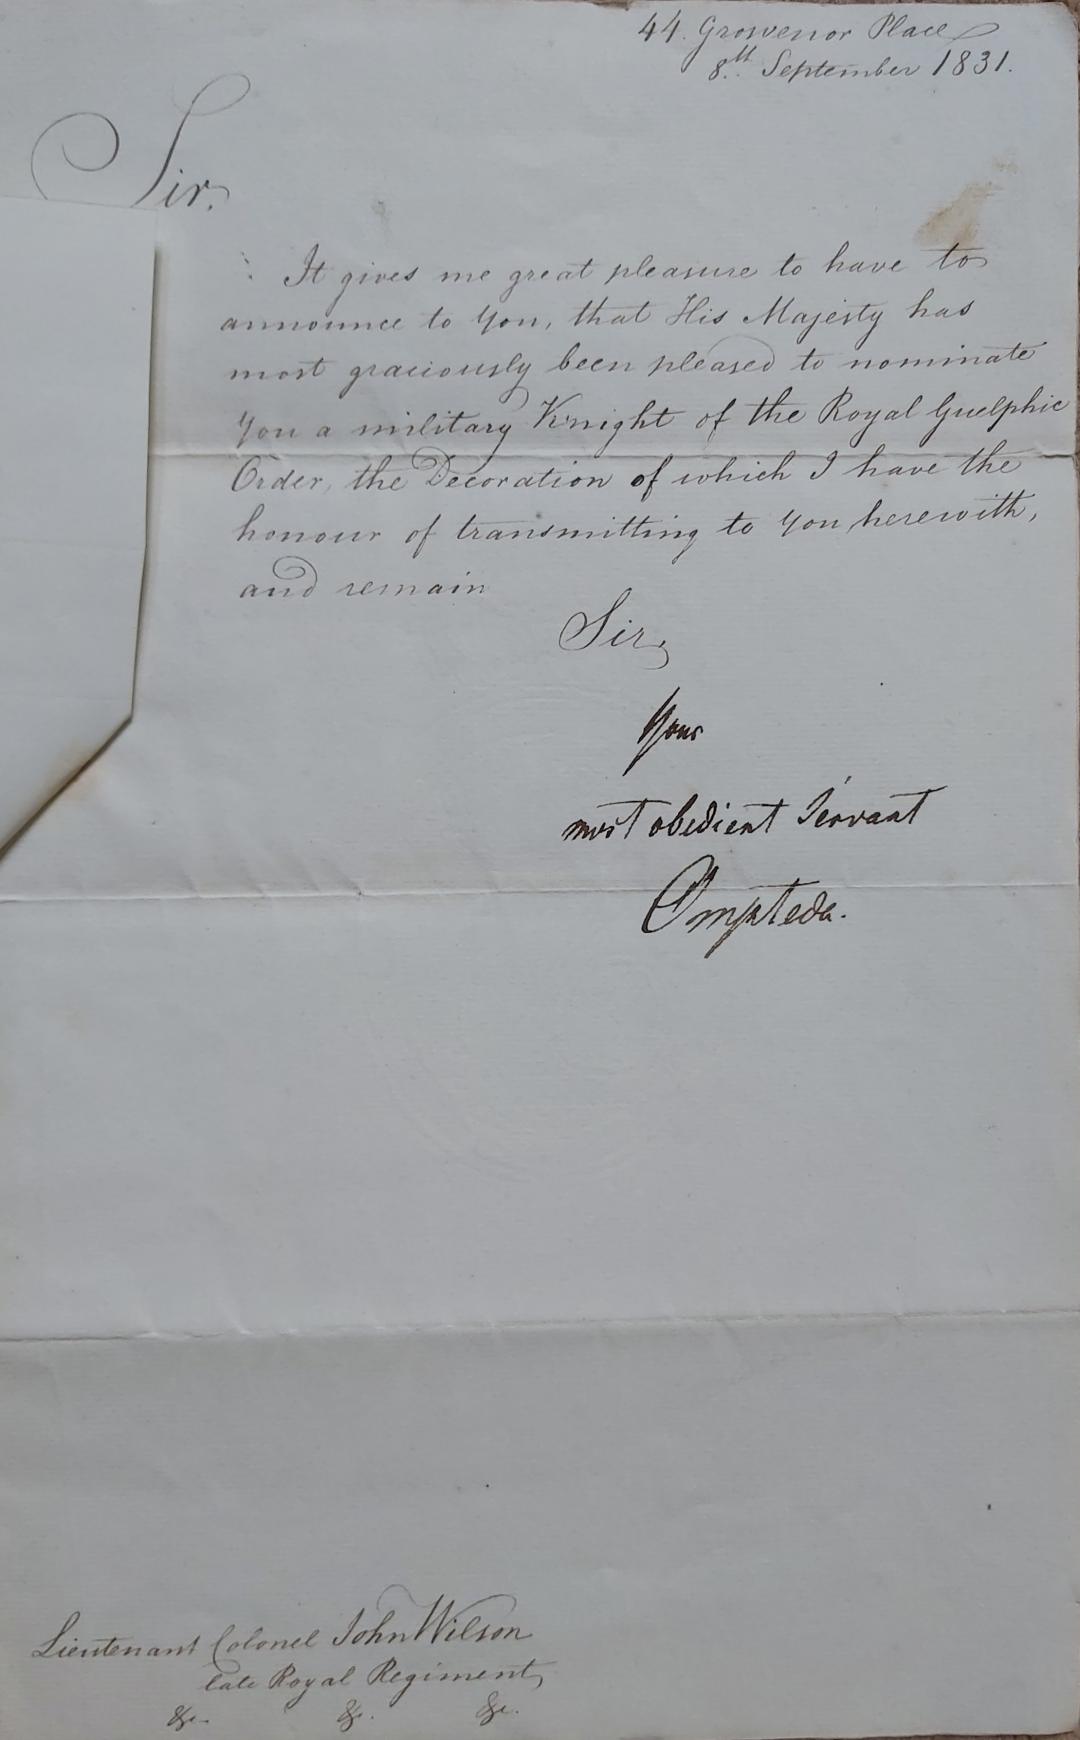 44. Grosvenor Place
8th. September 1831.
Sir.
It gives me great pleasure to have to
announce to You, that His Majesty has
most graciously been pleased to nominate
You a military Knight of the Royal Guelphic
Order, the Decoration of which I have the
honour of transmitting to You herewith,
and remain
Sir,
Your
most obedient Servant
Ompteda.
Lieutenant Colonel John Wilson
late Royal Regiment,
&c. &c. &c.